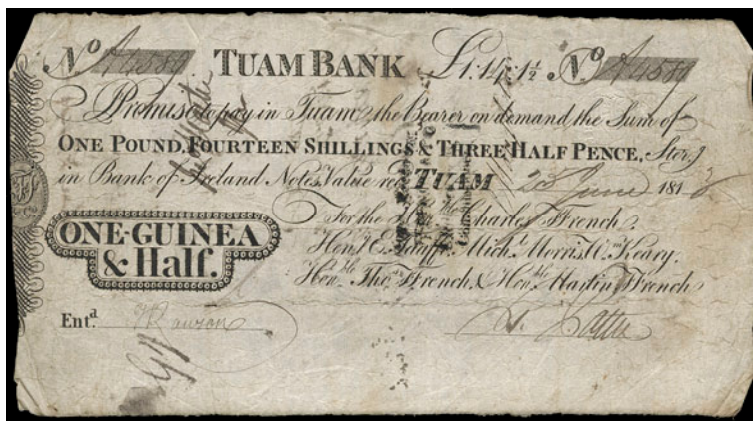 No A4589 TUAM BANK £1:14:1½ No A4589
I Promise to pay in Tuam, the Bearer on demand the Sum of
ONE POUND, FOURTEEN SHILLINGS & THREE HALF PENCE, Ster.g
in Bank of Ireland Notes Value rec.d TUAM 23d June 181
For the Honble Charles Ffrench,
ONE-GUINEA
& Half.
Mich.l Morris, Wm Keary,
Honble Thos Ffrench & Honble Martin Ffrench
Ent.d